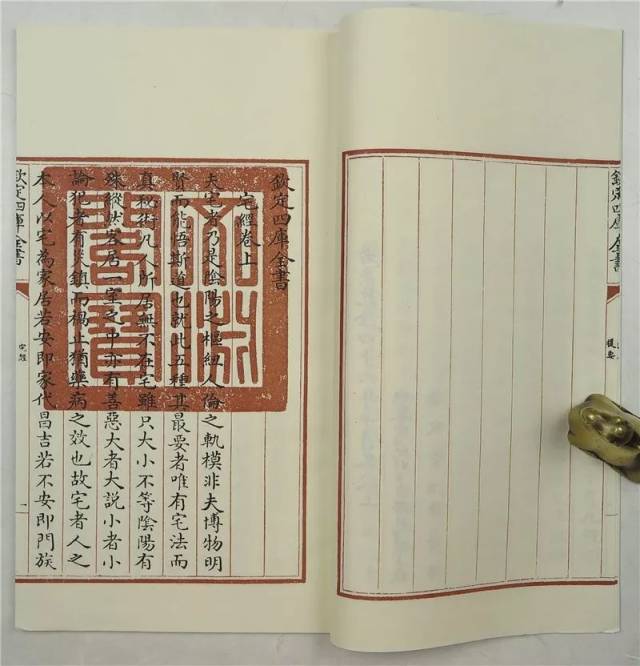 欽定四庫全書
提要
欽定四庫全書
宅經卷上
夫宅者乃是陰陽之樞紐人倫之軌模非夫博物明
賢而能悟斯道也就此五種其最要者唯有宅法而
真秘術凡人所居無不在宅雖只大小不等陰陽有
殊縱然客居一室之中亦有善惡大者大說小者小
論犯者有災鎮而禍止猶藥病之效也故宅者人之
本人以宅為家居若安即家代昌吉若不安即門族
文淵閣寶
欽定四庫全書
宅經
一